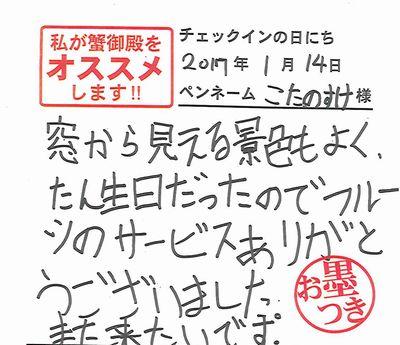 私が蟹御殿を
オススメ
します!!
チェックインの日にち
2017年 1月 14日
ペンネーム こたのすけ様
窓から見える景色もよく、
たん生日だったのでフルー
ツのサービスありがと
うございました。
また来たいです。
お墨つき